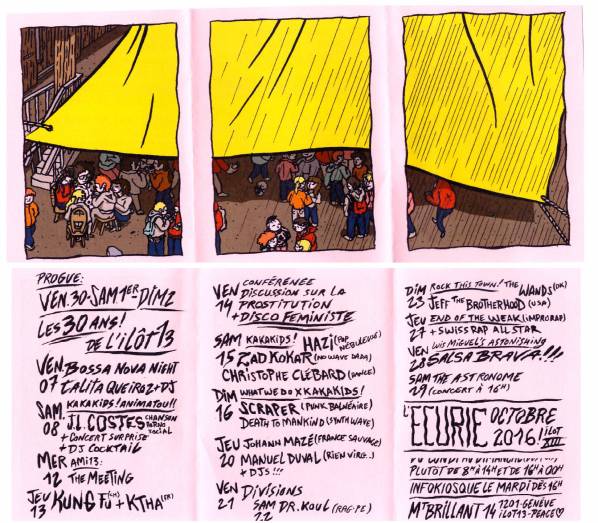 PROGUE:
VEN.30-SAM 1ER-DIM2
LES 30 ANS!
DE L'ILÔT 13
VEN. BOSSA NOVA NIGHT
07 TALITA QUEIROZ+DJ
SAM. KAKAKIDS! ANIMATOU!!
08 J.L. COSTES CHANSON PORNO SOCIAL
+ CONCERT SURPRISE
+ DJ COCKTAIL
MER AMI13:
12 THE MEETING
JEU KUNG FU (CH) + KTHA (FR)
13
VEN CONFÉRENCE
14 DISCUSSION SUR LA
PROSTITUTION
+ DISCO FEMINISTE
SAM KAKAKIDS! HAZI (RAP NÉBULEUSE)
15 RAD KOKAR (NO WAVE DADA)
CHRISTOPHE CLÉBARD (DANCE)
DIM WHAT WE DO X KAKAKIDS!
16 SCRAPER (PUNK BALNÉAIRE)
DEATH TO MANKIND (SYNTH WAVE)
JEU JOHANN MAZÉ (FRANCE SAUVAGE)
20 MANUEL DUVAL (RIEN VIRG..)
+ DJS!!!
VEN DIVISIONS
21 SAM DR. KOUL (RAG-PE)
22
DIM ROCK THIS TOWN! THE WANDS (DK)
23 JEFF THE BROTHERHOOD (USA)
JEU END OF THE WEAK (IMPRORAP)
27 + SWISS RAP ALL STAR
VEN LUIS MIGUEL'S ASTONISHING
28 SALSA BRAVA!!!
SAM THE ASTRONOME
29 (CONCERT À 16H)
L'ECURIE OCTOBRE
2016! ILOT XIII
PLUTÔT DE 8H À 14H ET DE 16H À 00H
INFOKIOSQUE LE MARDI DÈS 16H
MTBRILLANT 14 1201-GENÈVE
ILOT13-PEACE♡